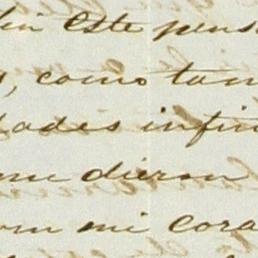 este pens
, como tam
dades infin
me dieron
mi cora